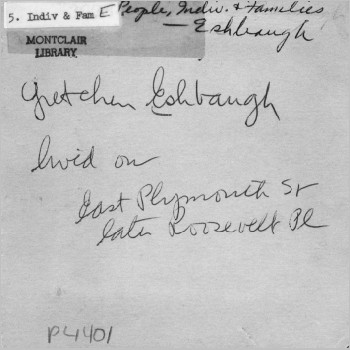 5. Indiv & Fam E People, Indiv. & Families
— Eshbaugh
MONTCLAIR
LIBRARY
Gretchen Eshbaugh
lived on
East Plymouth St
Later Roosevelt Pl
P4401